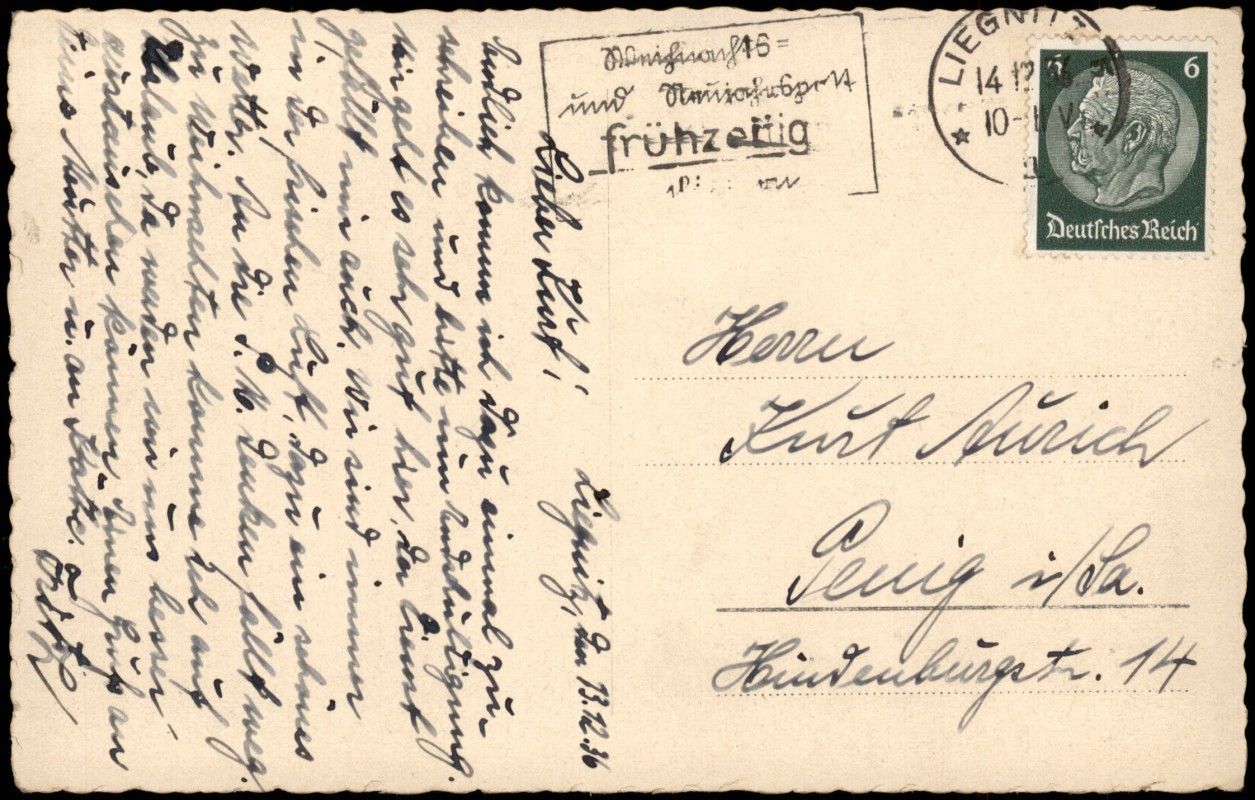 Weihnachts=
und Neujahrspost
frühzeitig
LIEGNITZ
14.12.36
10-11 V
6
6
Deutsches Reich
Herrn
Kurt Aurich
Penig i/Sa.
Hindenburgstr. 14
Liegnitz, den 13.12.36
Lieber Kurt!
Endlich komm ich dazu einmal zu-
schreiben und bitte um Entschuldigung.
Mir geht es sehr gut hier, der Dienst
gefällt mir auch. Wir sind immer
in der frischen Luft, dazu ein schönes
Wetter. An die denken fällt weg.
Zu Weihnachten komme ich auf
Urlaub, da werden wir uns besser
austauschen können. Einen Gruß an
Deine Mutter u. an Käthe.